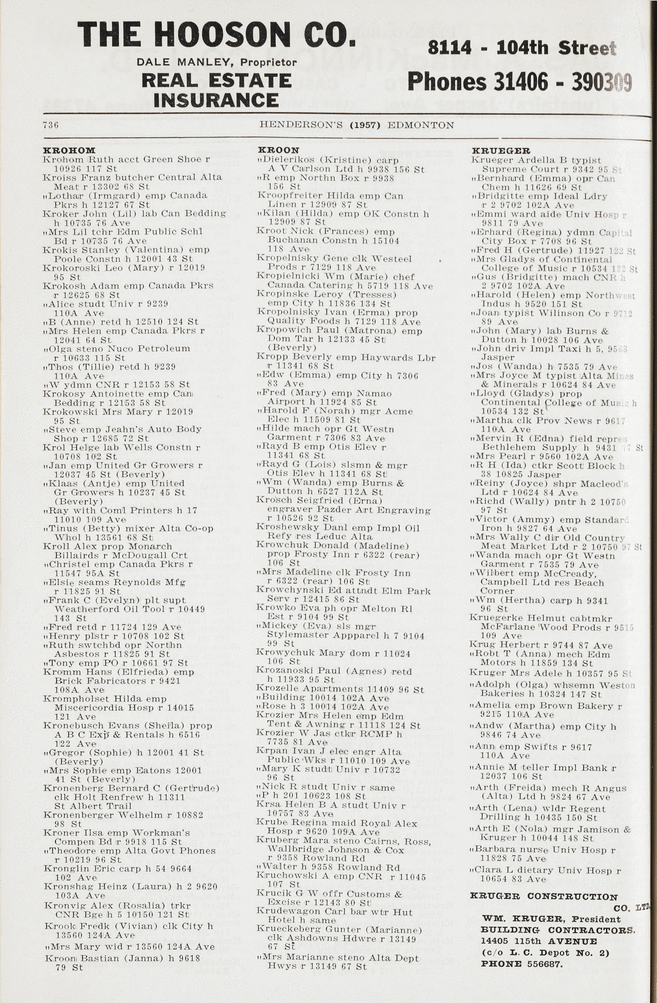 THE HOOSON CO.
DALE MANLEY, Proprietor
REAL ESTATE
INSURANCE
8114 - 104th Street
Phones 31406 - 390309
736
HENDERSON'S (1957) EDMONTON
KROHOM
Krohom Ruth acct Green Shoe r
10926 117 St
Kroiss Franz butcher Central Alta
Meat r 13302 68 St
„Lothar (Irmgard) emp Canada
Pkrs h 12127 67 St
Kroker John (Lil) lab Can Bedding
h 10735 76 Ave
„Mrs Lil tchr Edm Public Schl
Bd r 10735 76 Ave
Krokis Stanley (Valentina) emp
Poole Constn h 12001 43 St
Krokoroski Leo (Mary) r 12019
95 St
Krokosh Adam emp Canada Pkrs
r 12625 68 St
„Alice studt Univ r 9239
110A Ave
„B (Anne) retd h 12510 124 St
„Mrs Helen emp Canada Pkrs r
12041 64 St
„Olga steno Nuco Petroleum
r 10633 115 St
„Thos (Tillie) retd h 9239
110A Ave
„W ydmn CNR r 12153 58 St
Krokosy Antoinette emp Can
Bedding r 12153 58 St
Krokowski Mrs Mary r 12019
95 St
„Steve emp Jeahn's Auto Body
Shop r 12685 72 St
Krol Helge lab Wells Constn r
10708 102 St
„Jan emp United Gr Growers r
12037 45 St (Beverly)
„Klaas (Antje) emp United
Gr Growers h 10237 45 St
(Beverly)
„Ray with Coml Printers h 17
11010 109 Ave
„Tinus (Betty) mixer Alta Co-op
Whol h 13561 68 St
Kroll Alex prop Monarch
Billairds r McDougall Crt
„Christel emp Canada Pkrs r
11547 95A St
„Elsie seams Reynolds Mfg
r 11825 91 St
„Frank C (Evelyn) plt supt
Weatherford Oil Tool r 10449
143 St
„Fred retd r 11724 129 Ave
„Henry plstr r 10708 102 St
„Ruth swtchbd opr Northn
Asbestos r 11825 91 St
„Tony emp PO r 10661 97 St
Kromm Hans (Elfrieda) emp
Brick Fabricators r 9421
108A Ave
Krompholset Hilda emp
Misericordia Hosp r 14015
121 Ave
Kronebusch Evans (Sheila) prop
A B C Exp & Rentals h 6516
122 Ave
„Gregor (Sophie) h 12001 41 St
(Beverly)
„Mrs Sophie emp Eatons 12001
41 St (Beverly)
Kronenberg Bernard C (Gertrude)
clk Holt Renfrew h 11311
St Albert Trail
Kronenberger Welhelm r 10882
98 St
Kroner Ilsa emp Workman's
Compen Bd r 9918 115 St
„Theodore emp Alta Govt Phones
r 10219 96 St
Kronglin Eric carp h 54 9664
102 Ave
Kronshag Heinz (Laura) h 2 9620
103A Ave
Kronvig Alex (Rosalia) trkr
CNR Bge h 5 10150 121 St
Krook Fredk (Vivian) clk City h
13560 124A Ave
„Mrs Mary wid r 13560 124A Ave
Kroon Bastian (Janna) h 9618
79 St
KROON
„Dielerikos (Kristine) carp
A V Carlson Ltd h 9938 156 St
„R emp Northn Box r 9938
156 St
Kroopfreiter Hilda emp Can
Linen r 12909 87 St
„Kilan (Hilda) emp OK Constn h
12909 87 St
Kroot Nick (Frances) emp
Buchanan Constn h 15104
118 Ave
Kropelnisky Gene clk Westeel
Prods r 7129 118 Ave
Kropielnicki Wm (Marie) chef
Canada Catering h 5719 118 Ave
Kropinske Leroy (Tresses)
emp City h 11836 134 St
Kropolnisky Ivan (Erma) prop
Quality Foods h 7129 118 Ave
Kropowich Paul (Matrona) emp
Dom Tar h 12133 45 St
(Beverly)
Kropp Beverly emp Haywards Lbr
r 11341 68 St
„Edw (Emma) emp City h 7306
83 Ave
„Fred (Mary) emp Namao
Airport h 11924 85 St
„Harold F (Norah) mgr Acme
Elec h 11509 81 St
„Hilde mach opr Gt Westn
Garment r 7306 83 Ave
„Rayd B emp Otis Elev r
11341 68 St
„Rayd G (Lois) slsmn & mgr
Otis Elev h 11341 68 St
„Wm (Wanda) emp Burns &
Dutton h 6527 112A St
Krosch Seigfried (Erna)
engraver Pazder Art Engraving
r 10526 92 St
Kroshewsky Danl emp Impl Oil
Refy res Leduc Alta
Krowchuk Donald (Madeline)
prop Frosty Inn r 6322 (rear)
106 St
„Mrs Madeline clk Frosty Inn
r 6322 (rear) 106 St
Krowchynski Ed attndt Elm Park
Serv r 12415 86 St
Krowko Eva ph opr Melton Rl
Est r 9104 99 St
„Mickey (Eva) sls mgr
Stylemaster Appparel h 7 9104
99 St
Krowychuk Mary dom r 11024
106 St
Krozanoski Paul (Agnes) retd
h 11933 95 St
Krozelle Apartments 11409 96 St
„Building 10014 102A Ave
„Rose h 3 10014 102A Ave
Krozier Mrs Helen emp Edm
Tent & Awning r 11118 124 St
Krozier W Jas ctkr RCMP h
7735 81 Ave
Krpan Ivan J elec engr Alta
Public Wks r 11010 109 Ave
„Mary K studt Univ r 10732
96 St
„Nick R studt Univ r same
„P h 201 10623 108 St
Krsa Helen B A studt Univ r
10757 83 Ave
Krube Regina maid Royal Alex
Hosp r 9620 109A Ave
Kruberg Mara steno Cairns, Ross,
Wallbridge Johnson & Cox
r 9358 Rowland Rd
„Walter h 9358 Rowland Rd
Kruchowski A emp CNR r 11045
107 St
Krucik G W offr Customs &
Excise r 12143 80 St
Krudewagon Carl bar wtr Hut
Hotel h same
Krueckeberg Gunter (Marianne)
clk Ashdowns Hdwre r 13149
67 St
„Mrs Marianne steno Alta Dept
Hwys r 13149 67 St
KRUEGER
Krueger Ardella B typist
Supreme Court r 9342 95 St
„Bernhard (Emma) opr Can
Chem h 11626 69 St
„Bridgitte emp Ideal Ldry
r 2 9702 102A Ave
„Emmi ward aide Univ Hosp r
9811 79 Ave
„Erhard (Regina) ydmn Capital
City Box r 7708 96 St
„Fred H (Gertrude) 11927 122 St
„Mrs Gladys of Continental
College of Music r 10534 132 St
„Gus (Bridgitte) mach CNR h
2 9702 102A Ave
„Harold (Helen) emp Northwest
Indus h 9520 151 St
„Joan typist Wilinson Co r 9712
89 Ave
„John (Mary) lab Burns &
Dutton h 10028 106 Ave
„John driv Impl Taxi h 5, 9563
Jasper
„Jos (Wanda) h 7535 79 Ave
„Mrs Joyce M typist Alta Mines
& Minerals r 10624 84 Ave
„Lloyd (Gladys) prop
Continental College of Music h
10534 132 St
„Martha clk Prov News r 9617
110A Ave
„Mervin R (Edna) field repres
Bethlehem Supply h 9431 St
„Mrs Pearl r 9560 102A Ave
„R H (Ida) ctkr Scott Block h
38 10825 Jasper
„Reiny (Joyce) shpr Macleod's
Ltd r 10624 84 Ave
„Richd (Wally) pntr h 2 10750
97 St
„Victor (Ammy) emp Standard
Iron h 9827 64 Ave
„Mrs Wally C dir Old Country
Meat Market Ltd r 2 10750 97 St
„Wanda mach opr Gt Westn
Garment r 7535 79 Ave
„Wilbert emp McCready,
Campbell Ltd res Beach
Corner
„Wm (Hertha) carp h 9341
96 St
Kruegerke Helmut cabtmkr
McFarlane Wood Prods r 9515
109 Ave
Krug Herbert r 9744 87 Ave
„Robt T (Anna) mech Edm
Motors h 11859 134 St
Kruger Mrs Adele h 10357 95 St
„Adolph (Olga) whsemn Weston
Bakeries h 10324 147 St
„Amelia emp Brown Bakery r
9215 110A Ave
„Andw (Martha) emp City h
9846 74 Ave
„Ann emp Swifts r 9617
110A Ave
„Annie M teller Impl Bank r
12037 106 St
„Arth (Freida) mech R Angus
(Alta) Ltd h 9824 67 Ave
„Arth (Lena) wldr Regent
Drilling h 10435 150 St
„Arth E (Nola) mgr Jamison &
Kruger h 10044 148 St
„Barbara nurse Univ Hosp r
11828 75 Ave
„Clara L dietary Univ Hosp r
10654 83 Ave
KRUGER CONSTRUCTION
CO. LTD.
WM. KRUGER, President
BUILDING CONTRACTORS.
14405 115th AVENUE
(c/o L. C. Depot No. 2)
PHONE 556687.